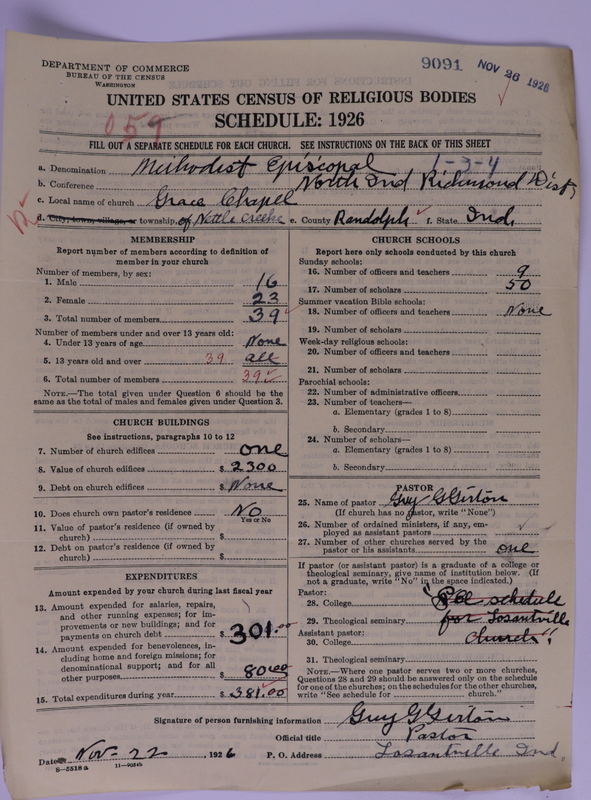 DEPARTMENT OF COMMERCE
BUREAU OF THE CENSUS
WASHINGTON
9091 NOV 26 1926
UNITED STATES CENSUS OF RELIGIOUS BODIES
059
SCHEDULE: 1926
FILL OUT A SEPARATE SCHEDULE FOR EACH CHURCH. SEE INSTRUCTIONS ON THE BACK OF THIS SHEET
a. Denomination Methodist Episcopal 1-3-4
b. Conference North Ind Richmond Dist,
c. Local name of church Grace Chapel
d. City, town, village, or township, of Nettle Creek e. County Randolph f. State Ind.
MEMBERSHIP
Report number of members according to definition of member in your church
Number of members, by sex:
1. Male 16
2. Female 23
3. Total number of members 39
Number of members under and over 13 years old:
4. Under 13 years of age None
5. 13 years old and over 39 all
6. Total number of members 39
NOTE.—The total given under Question 6 should be the same as the total of males and females given under Question 3.
CHURCH BUILDINGS
See instructions, paragraphs 10 to 12
7. Number of church edifices one
8. Value of church edifices $ 2300
9. Debt on church edifices $ None
10. Does church own pastor's residence? No
Yes or No
11. Value of pastor's residence (if owned by church) $
12. Debt on pastor's residence (if owned by church) $
EXPENDITURES
Amount expended by your church during last fiscal year
13. Amount expended for salaries, repairs, and other running expense; for improvements or new buildings; and for payments on church debt $ 301.00
14. Amount expended for benevolences, including home and foreign missions; for denominational support; and for all other purposes $ 80.00
15. Total expenditures during year $ 381.00
CHURCH SCHOOLS
Report here only schools conducted by this church
Sunday schools:
16. Number of officers and teachers 9
17. Number of scholars 50
Summer vacation Bible schools:
18. Number of officers and teachers None
19. Number of scholars
Week-day religious schools:
20. Number of officers and teachers
21. Number of scholars
Parochial schools:
22. Number of administrative officers
23. Number of teachers—
a. Elementary (grades 1 to 8)
b. Secondary
24. Number of scholars—
a. Elementary (grades 1 to 8)
b. Secondary
PASTOR
25. Name of pastor Guy G Girton
(If church has no pastor, write "None")
26. Number of ordained ministers, if any, employed as assistant pastors
27. Number of other churches served by the pastor or his assistants one
If pastor (or assistant pastor) is a graduate of a college or theological seminary, give name of institution below. (If not a graduate, write "No" in the space indicated.)
Pastor:
28. College "See schedule
29. Theological seminary for Losantville
Assistant pastor:
30. College church"
31. Theological seminary
NOTE.—Where one pastor serves two or more churches, Questions 28 and 29 should be answered only on the schedule for one of the churches; on the schedules for the other churches, write "See schedule for church."
Signature of person furnishing information Guy G Girton
Official title Pastor
Date Nov. 22, 1926 P. O. Address Losantville Ind.
8—5518a